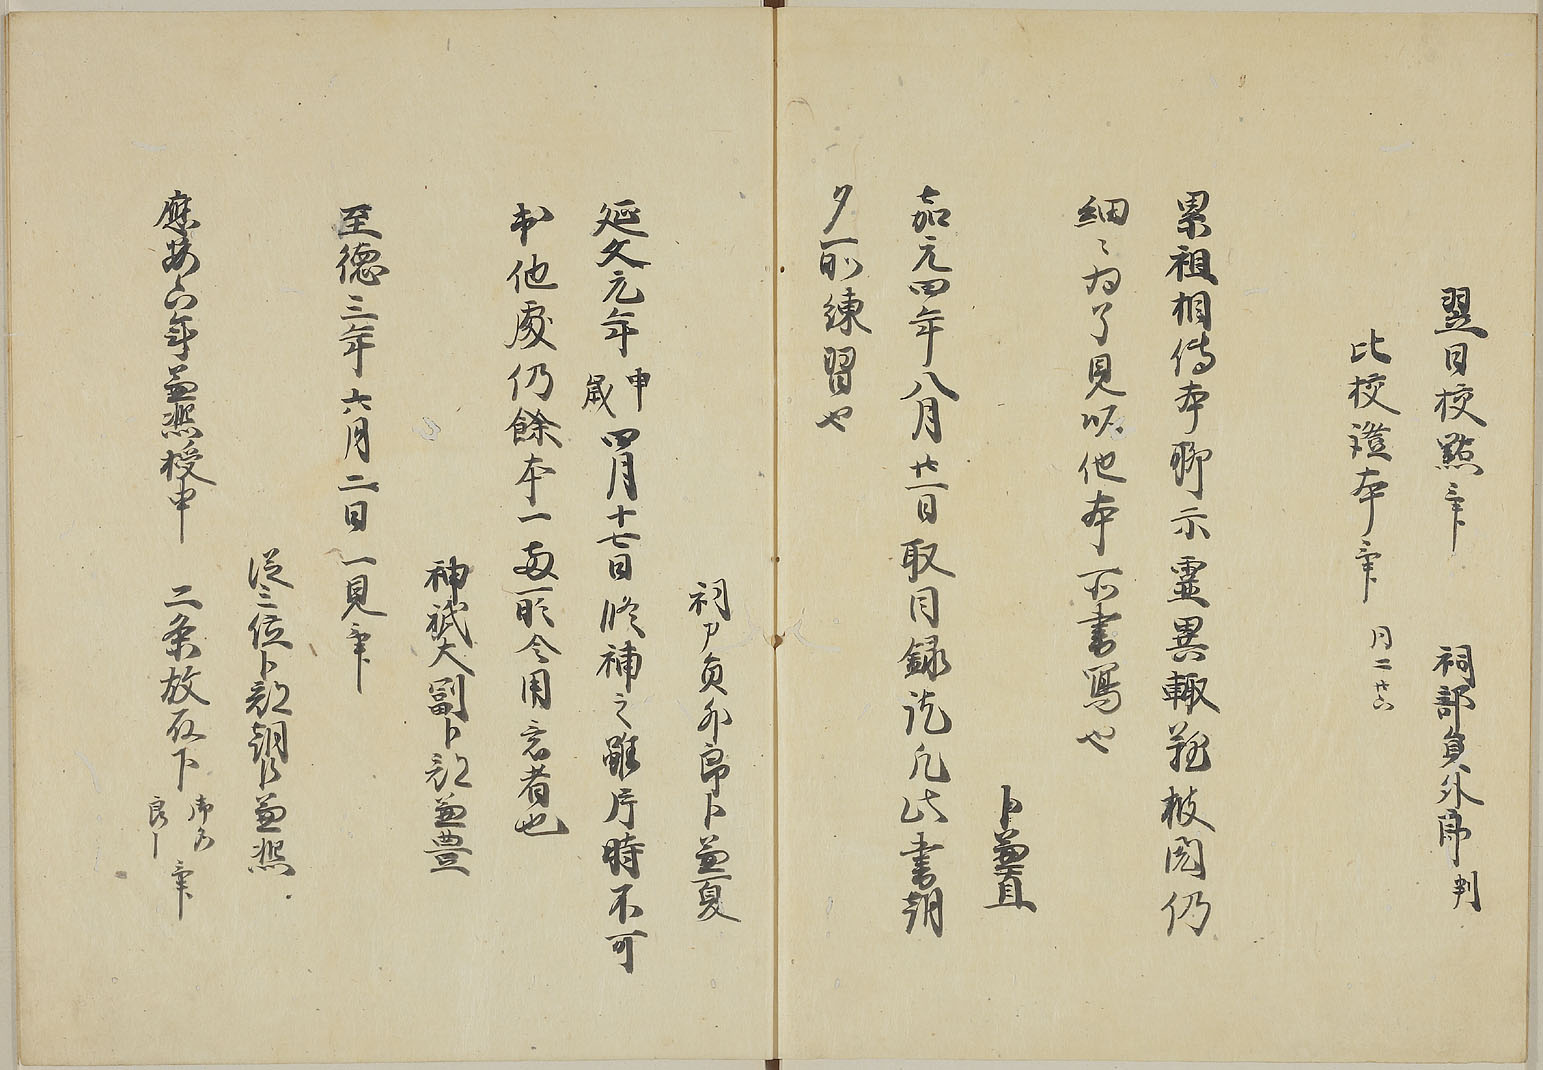 翌日校點了 祠部員外郎判
比校證本了 月二廿六
累祖相傳本聊示靈異輙難披閲仍
細〻為了見以他本所書寫也
卜兼直
嘉元四年八月廿一日取目録訖凡此書朝
夕所練習也
祠部員外郎卜兼夏
延文元年申歳四月十七日修補之雖片時不可
出他處仍餘本一両部令用意者也
神祇大副卜部兼豊
至徳三年六月二日一見了
從二位卜部朝臣兼凞
應安六年兼凞授申 二条故殿下御名良〡了